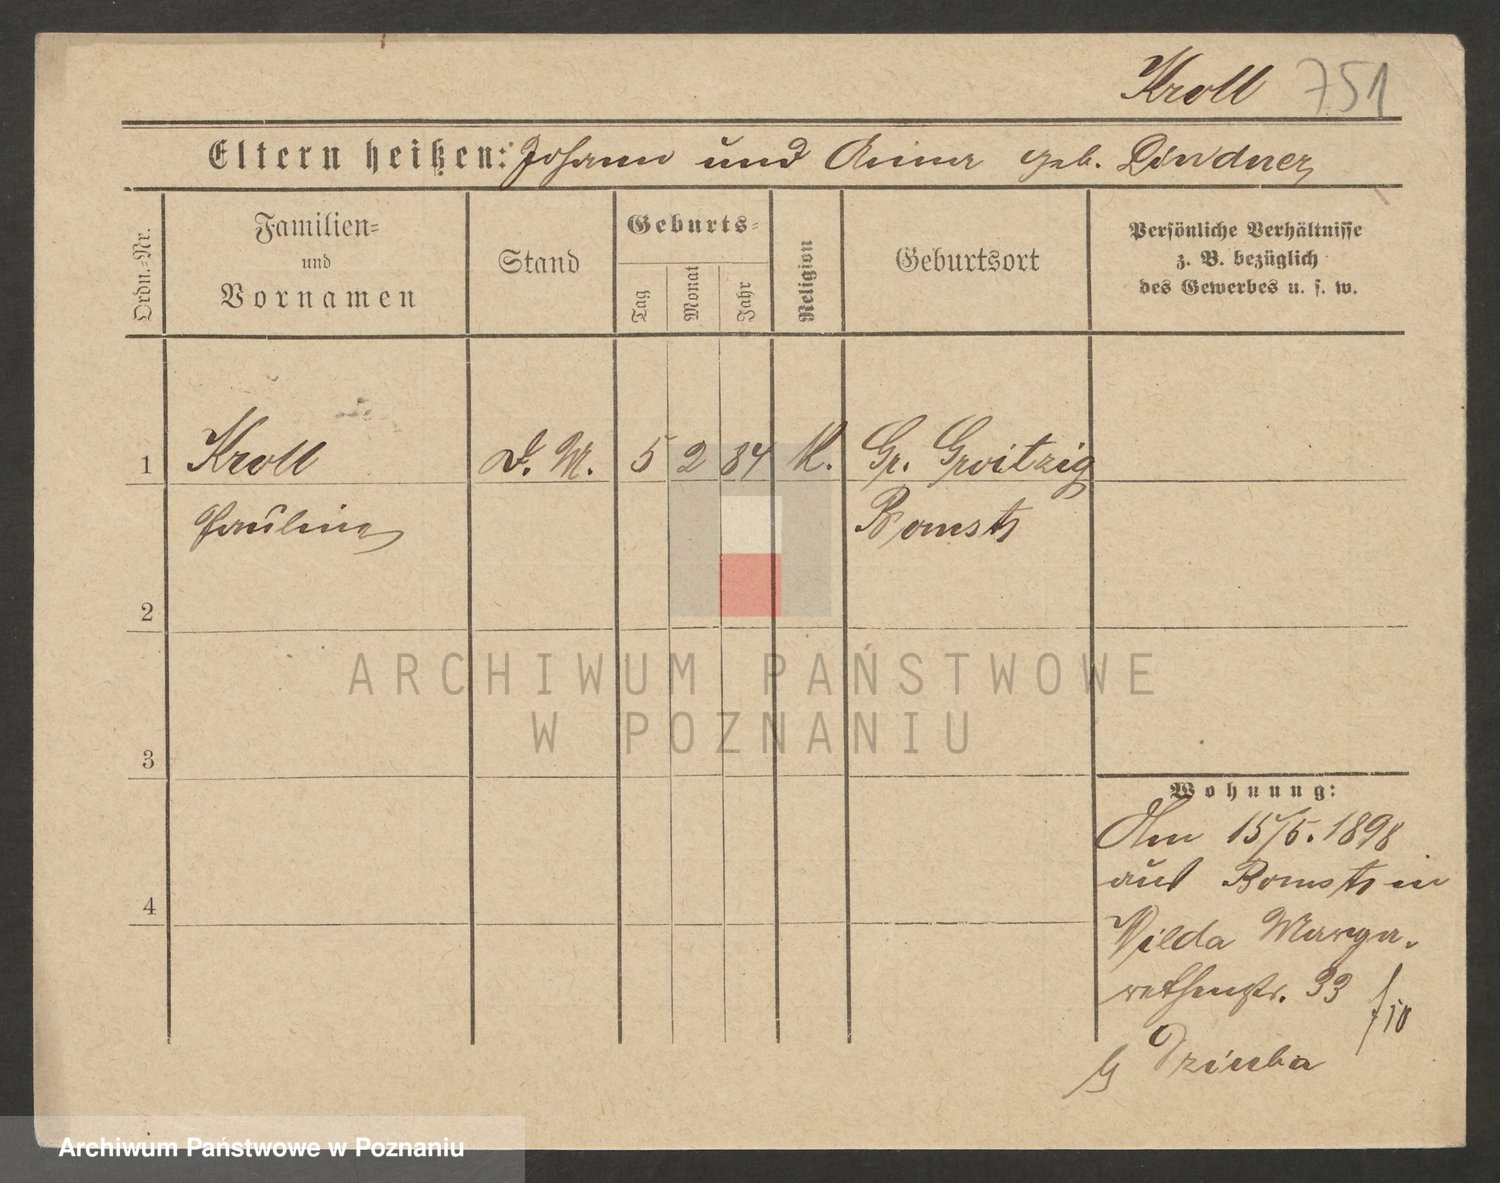 Kroll 751
Eltern heißen: Johann und Anna geb. Lindner
Ordn.-Nr.
Familien-
und
Vornamen
Stand
Geburts-
Tag
Monat
Jahr
Religion
Geburtsort
Persönliche Verhältnisse
z. B. bezüglich
des Gewerbes u. s. w.
1 Kroll D. M. 5 2 84 K. Gr. Groitzig
Pauline Bomst
2
ARCHIWUM PAŃSTWOWE
W POZNANIU
3
Wohnung:
Am 15/5. 1898
aus Bomst in
4
Wilda Marga-
rethenstr. 33
b Dziuba
Archiwum Państwowe w Poznaniu